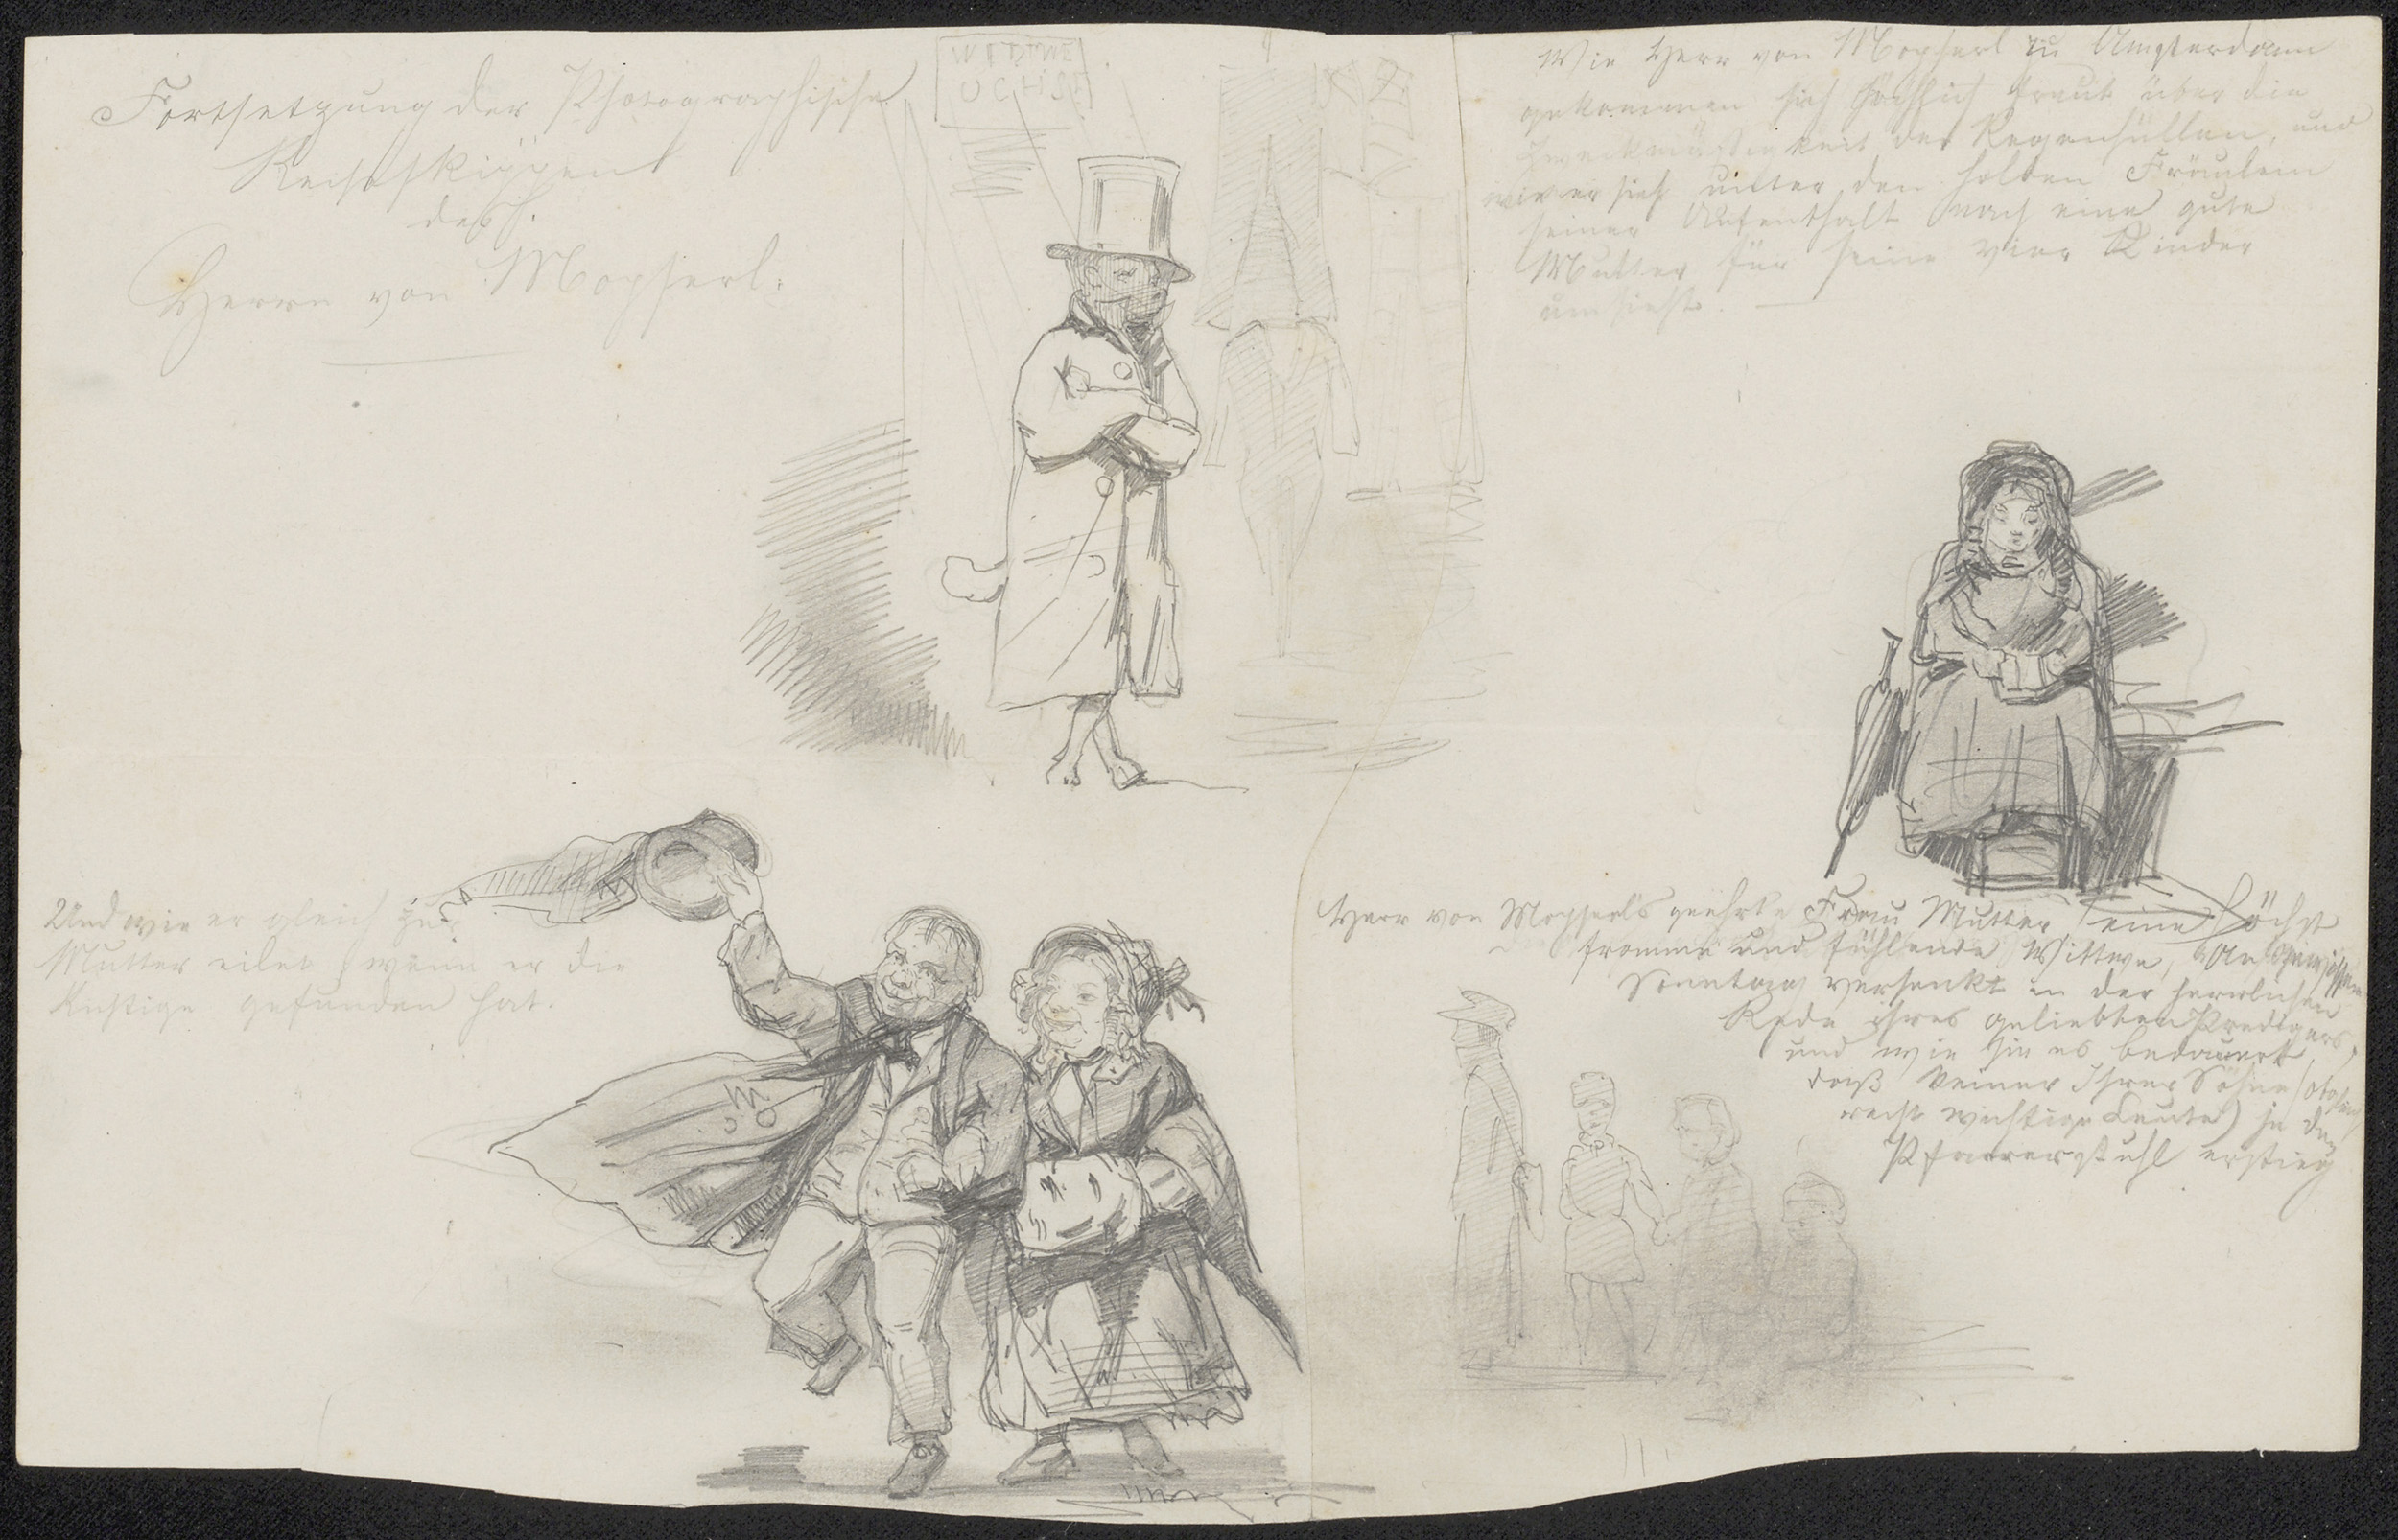 Fortsetzung der Photographische
Reiseskizzen
des
Herrn von Mopserl.
WEDTWE
OCHS
Wie Herr von Mopserl zu Amsterdam
gekommen sich höchlich freut über die
Zweckmässigkeit der Regenhüllen, und
wie er sich unter den holden Fräulein
seiner Aufenthalt nach eine gute
Mutter für seine vier Kinder
umsieht.
Und wie er gleich zur
Mutter eilet, wenn er die
Richtige gefunden hat.
Herr von Mopserl's geehrte Frau Mutter, eine höchst
fromme und fühlende Wittwe, An
Sonntag versenkt in der herrlichen
Rede ihres geliebten Predigers,
und wie sie es bedauert,
daß keiner Ihrer Söhne (
recht wichtige Leute) je den
Pfarrerstuhl erstieg